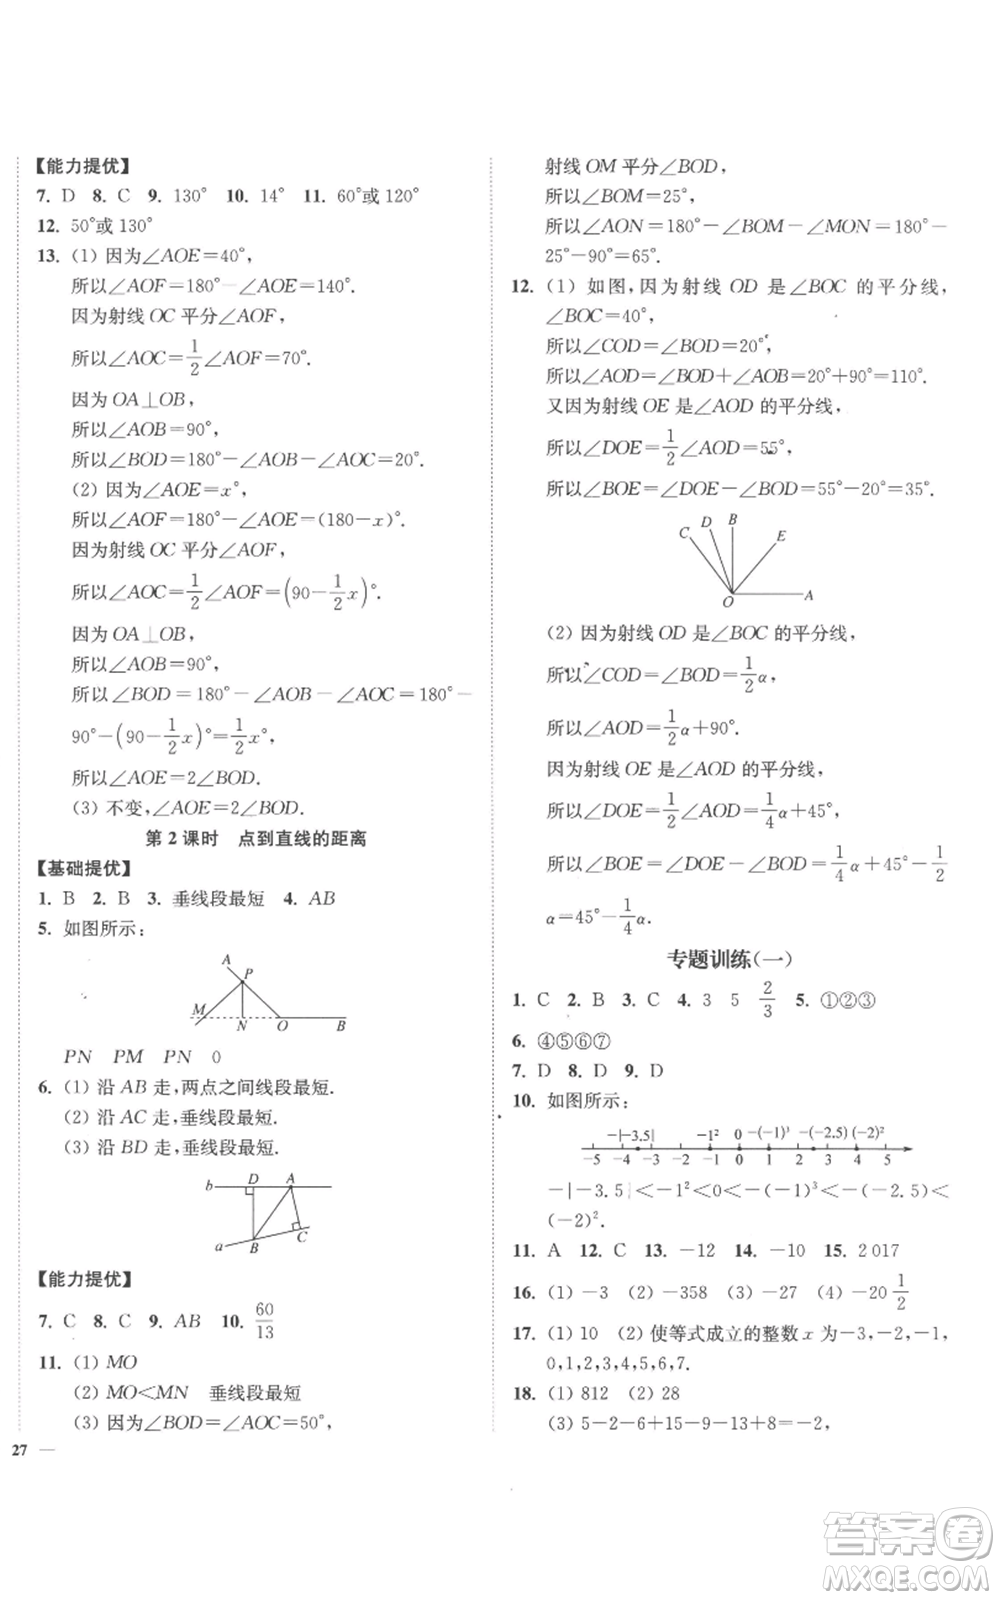 【能力提优】
7. D 8. C 9. 130° 10. 14° 11. 60°或 120°
12. 50°或 130°
13. (1) 因为∠AOE=40°,
所以∠AOF=180°-∠AOE=140°.
因为射线 OC 平分∠AOF,
所以∠AOC=1/2∠AOF=70°.
因为 OA⊥OB,
所以∠AOB=90°,
所以∠BOD=180°-∠AOB-∠AOC=20°.
(2) 因为∠AOE=x°,
所以∠AOF=180°-∠AOE=(180-x)°.
因为射线 OC 平分∠AOF,
所以∠AOC=1/2∠AOF=(90-1/2x)°.
因为 OA⊥OB,
所以∠AOB=90°,
所以∠BOD=180°-∠AOB-∠AOC=180°-
90°-(90-1/2x)°=1/2x°,
所以∠AOE=2∠BOD.
(3) 不变,∠AOE=2∠BOD.
第 2 课时 点到直线的距离
【基础提优】
1. B 2. B 3. 垂线段最短 4. AB
5. 如图所示:
A P M N O B
PN PM PN 0
6. (1) 沿 AB 走,两点之间线段最短.
(2) 沿 AC 走,垂线段最短.
(3) 沿 BD 走,垂线段最短.
b D A a B C
【能力提优】
7. C 8. C 9. AB 10. 60/13
11. (1) MO
(2) MO<MN 垂线段最短
(3) 因为∠BOD=∠AOC=50°,
27 —
射线 OM 平分∠BOD,
所以∠BOM=25°,
所以∠AON=180°-∠BOM-∠MON=180°-
25°-90°=65°.
12. (1) 如图,因为射线 OD 是∠BOC 的平分线,
∠BOC=40°,
所以∠COD=∠BOD=20°,
所以∠AOD=∠BOD+∠AOB=20°+90°=110°.
又因为射线 OE 是∠AOD 的平分线,
所以∠DOE=1/2∠AOD=55°,
所以∠BOE=∠DOE-∠BOD=55°-20°=35°.
C D B E O A
(2) 因为射线 OD 是∠BOC 的平分线,
所以∠COD=∠BOD=1/2α,
所以∠AOD=1/2α+90°.
因为射线 OE 是∠AOD 的平分线,
所以∠DOE=1/2∠AOD=1/4α+45°,
所以∠BOE=∠DOE-∠BOD=1/4α+45°-1/2
α=45°-1/4α.
专题训练(一)
1. C 2. B 3. C 4. 3 5 2/3 5. ①②③
6. ④⑤⑥⑦
7. D 8. D 9. D
10. 如图所示:
-|-3.5| -1² 0 -(-1)³ -(-2.5) (-2)²
-5 -4 -3 -2 -1 0 1 2 3 4 5
-|-3.5|<-1²<0<-(-1)³<-(-2.5)<
(-2)².
11. A 12. C 13. -12 14. -10 15. 2 017
16. (1) -3 (2) -358 (3) -27 (4) -20 1/2
17. (1) 10 (2) 使等式成立的整数 x 为-3,-2,-1,
0,1,2,3,4,5,6,7.
18. (1) 812 (2) 28
(3) 5-2-6+15-9-13+8=-2,
答案卷
MXQE.COM